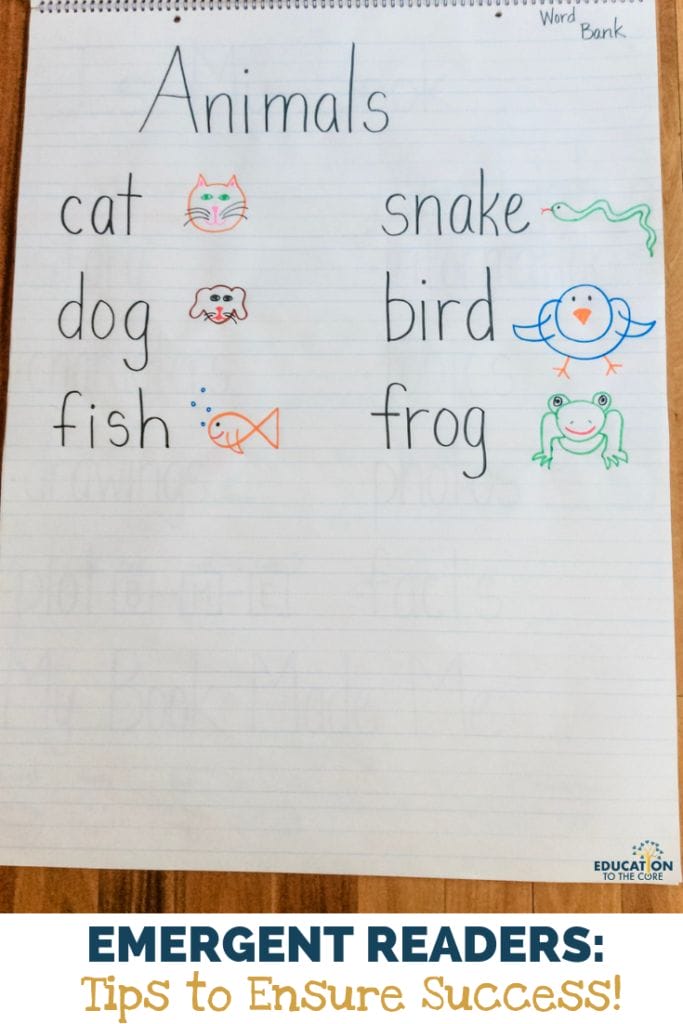 Word
Bank
Animals
cat
snake
dog
bird
fish
frog
My Book Made Me
EDUCATION
TO THE CORE
EMERGENT READERS:
Tips to Ensure Success!